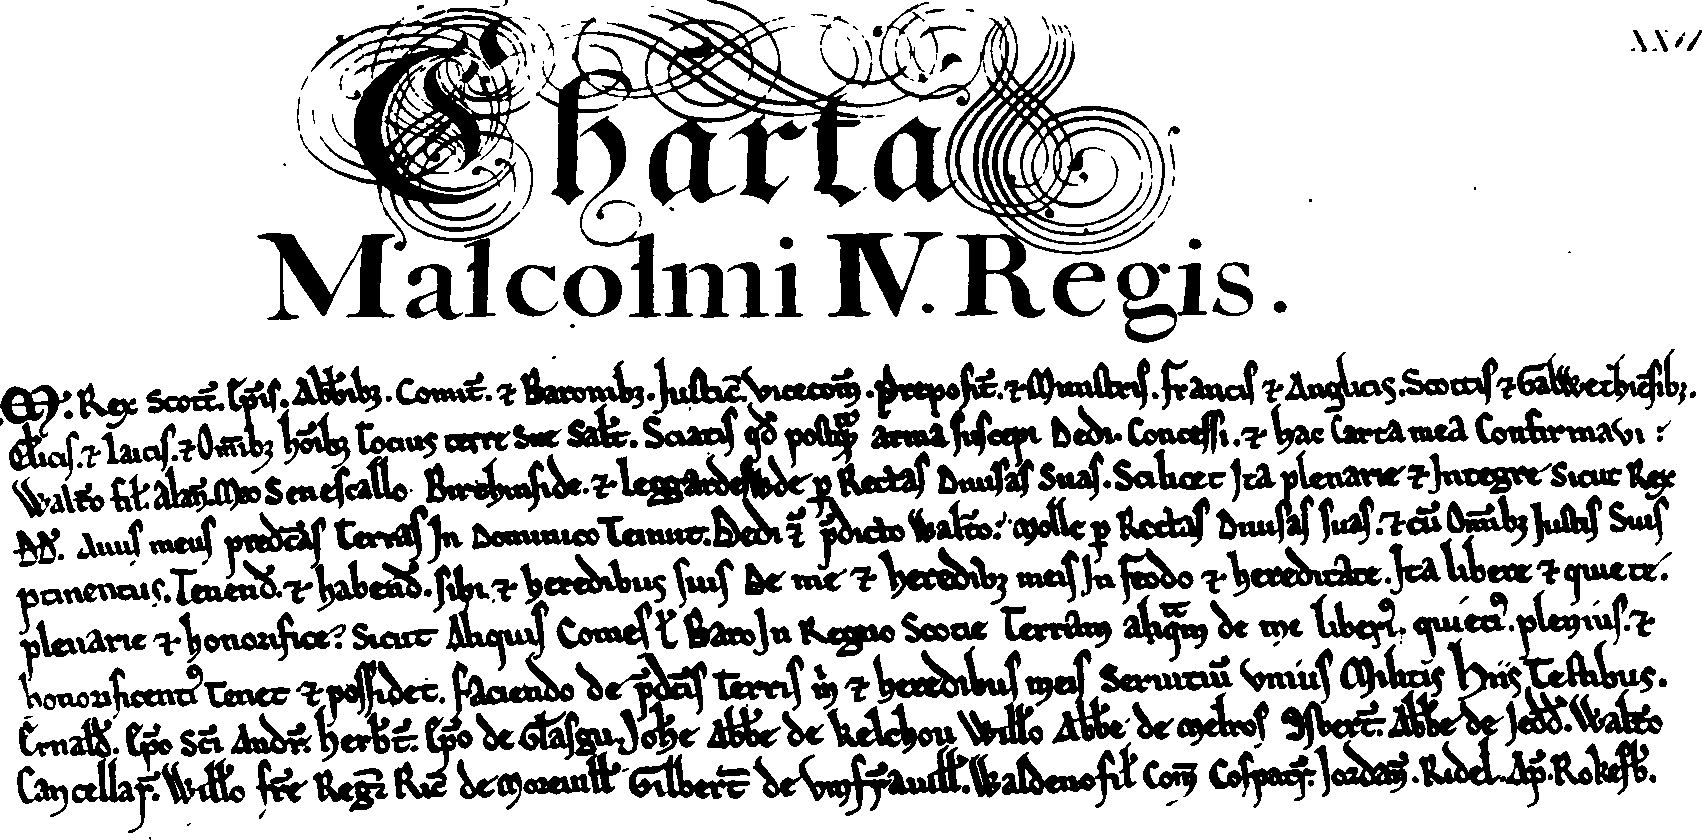 XXVI
Charta
Malcolmi IV. Regis.
M'. Rex Scott̄. Ep̄is. Abb̄ibꝫ. Comit̄. ⁊ Baronibꝫ. Justic̄. Vicecom̄. Preposit̄. ⁊ Ministris. Francis ⁊ Anglicis. Scottis ⁊ Galwechiēsibꝫ.
Cl̄icis. ⁊ Laicis. ⁊ Om̄ibꝫ ho͞ibꝫ Tocius terre Sue Sal̄t. Sciatis qd̄ postꝗ̄ arma suscepi Dedi. Concessi. ⁊ hac Carta mea Confirmavi :
Walt̄o fil̄. Alan̄. Meo Senescallo Birchinside. ⁊ Leggardeswde ꝑ Rectas Diuisas Suas. Scilicet Ita plenarie ⁊ Integre Sicut Rex
Dd̄. Auus meus predc̄as Terras In Dominico Tenuit. Dedi ⁊ p̄dicto Walt̄o: Molle ꝑ Rectas Diuisas suas. ⁊ cū Om̄ibꝫ Justis Suis
ptinentiis. Tenend̄. ⁊ habend̄. sibi ⁊ heredibus suis De me ⁊ heredibꝫ meis In feodo ⁊ hereditate. Ita libere ⁊ quiete.
plenarie ⁊ honorifice? Sicut Aliquis Comes ł Baro In Regno Scotie Terram aliqᵃm de me liberi'. quieti'. plenius. ⁊
honorificenti' Tenet ⁊ possidet. faciendo de p̄dc̄is Terris m̄ ⁊ heredibus meis Seruitiū Vnius Militis Hiis Testibus.
Ernald̄. Ep̄o Sc̄i Andr̄. Herb̄t̄. Ep̄o de Glasgu. Joh̄e Abb̄e de Kelchou Will̄o Abb̄e de Melros Osbert̄. Abb̄e de Jedd̄. Walt̄o
Cancellar̄. Will̄o fr̄e Reḡ Ric̄ de Moreuill̄ Gilbert̄ de Vmfr̄auill̄. Waldeno fil̄ Com̄ Cospatr̄. Jordan̄. Ridel. Ap̄. Rokesb̄.